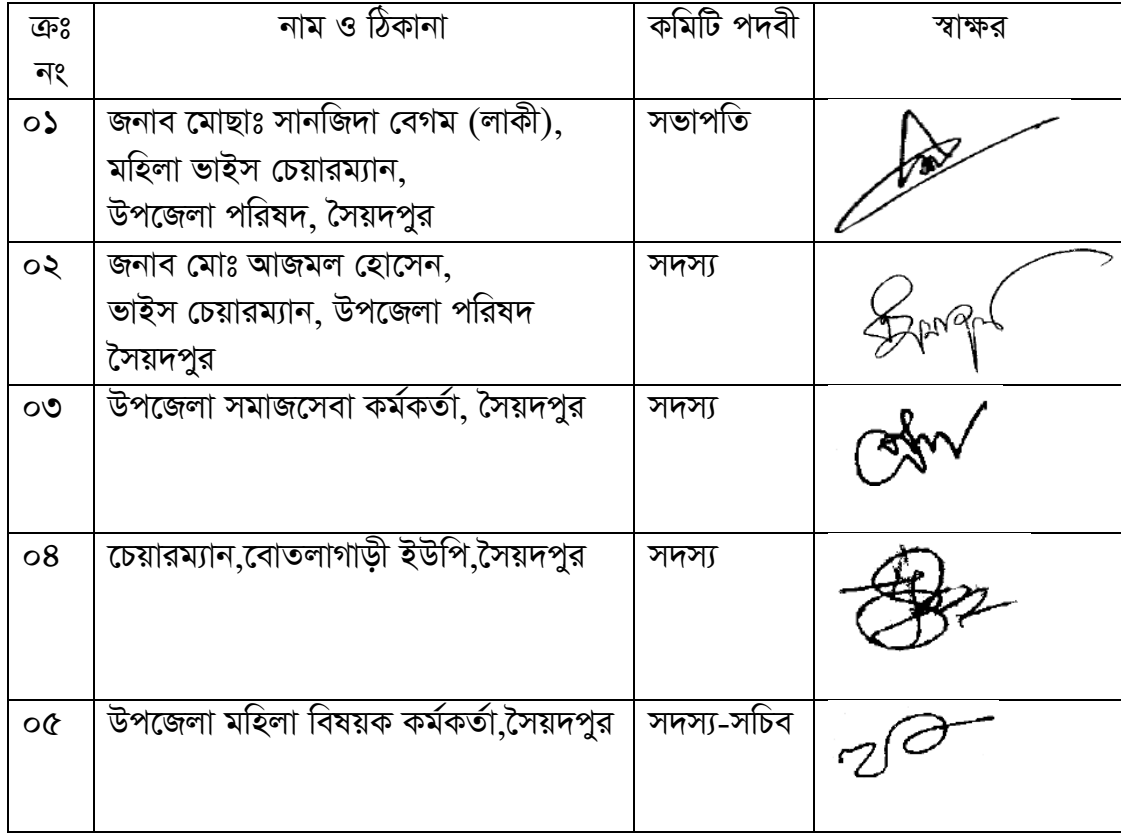 ক্রঃ নং নাম ও ঠিকানা কমিটি পদবী স্বাক্ষর
০১ জনাব মোছাঃ সানজিদা বেগম (লাকী), সভাপতি
মহিলা ভাইস চেয়ারম্যান,
উপজেলা পরিষদ, সৈয়দপুর
০২ জনাব মোঃ আজমল হোসেন, সদস্য
ভাইস চেয়ারম্যান, উপজেলা পরিষদ
সৈয়দপুর
০৩ উপজেলা সমাজসেবা কর্মকর্তা, সৈয়দপুর সদস্য
০৪ চেয়ারম্যান,বোতলাগাড়ী ইউপি,সৈয়দপুর সদস্য
০৫ উপজেলা মহিলা বিষয়ক কর্মকর্তা,সৈয়দপুর সদস্য-সচিব